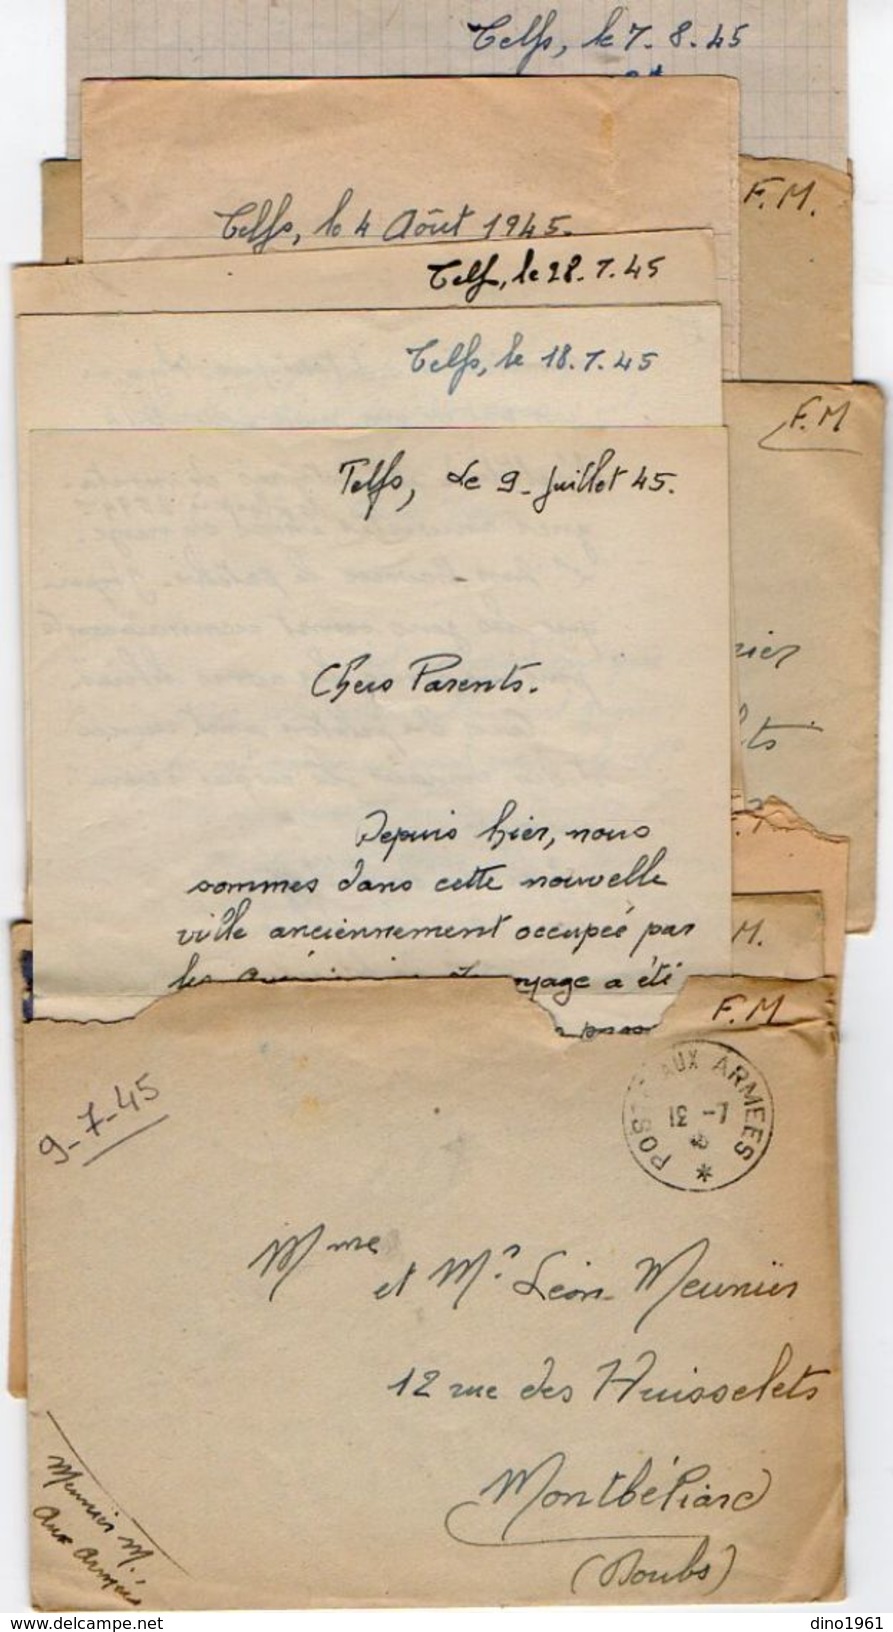 Telfs, le 7.8.45
F.M.
Telfs, le 4 Août 1945.
Telfs, le 28.7.45
Telfs, le 18.7.45
F.M
Telfs, Le 9 Juillet 45.
Chers Parents.
Depuis hier, nous
sommes dans cette nouvelle
ville anciennement occupée par
les a été
nier
lts
M.
F.M
POSTE AUX ARMEES
13 7-
*
9-7-45
Mme
et Mr Léon Meunier
12 rue des Huisselets
Montbéliard
(Doubs)
Meunier M.
aux armées
delcampe.net
dino1961